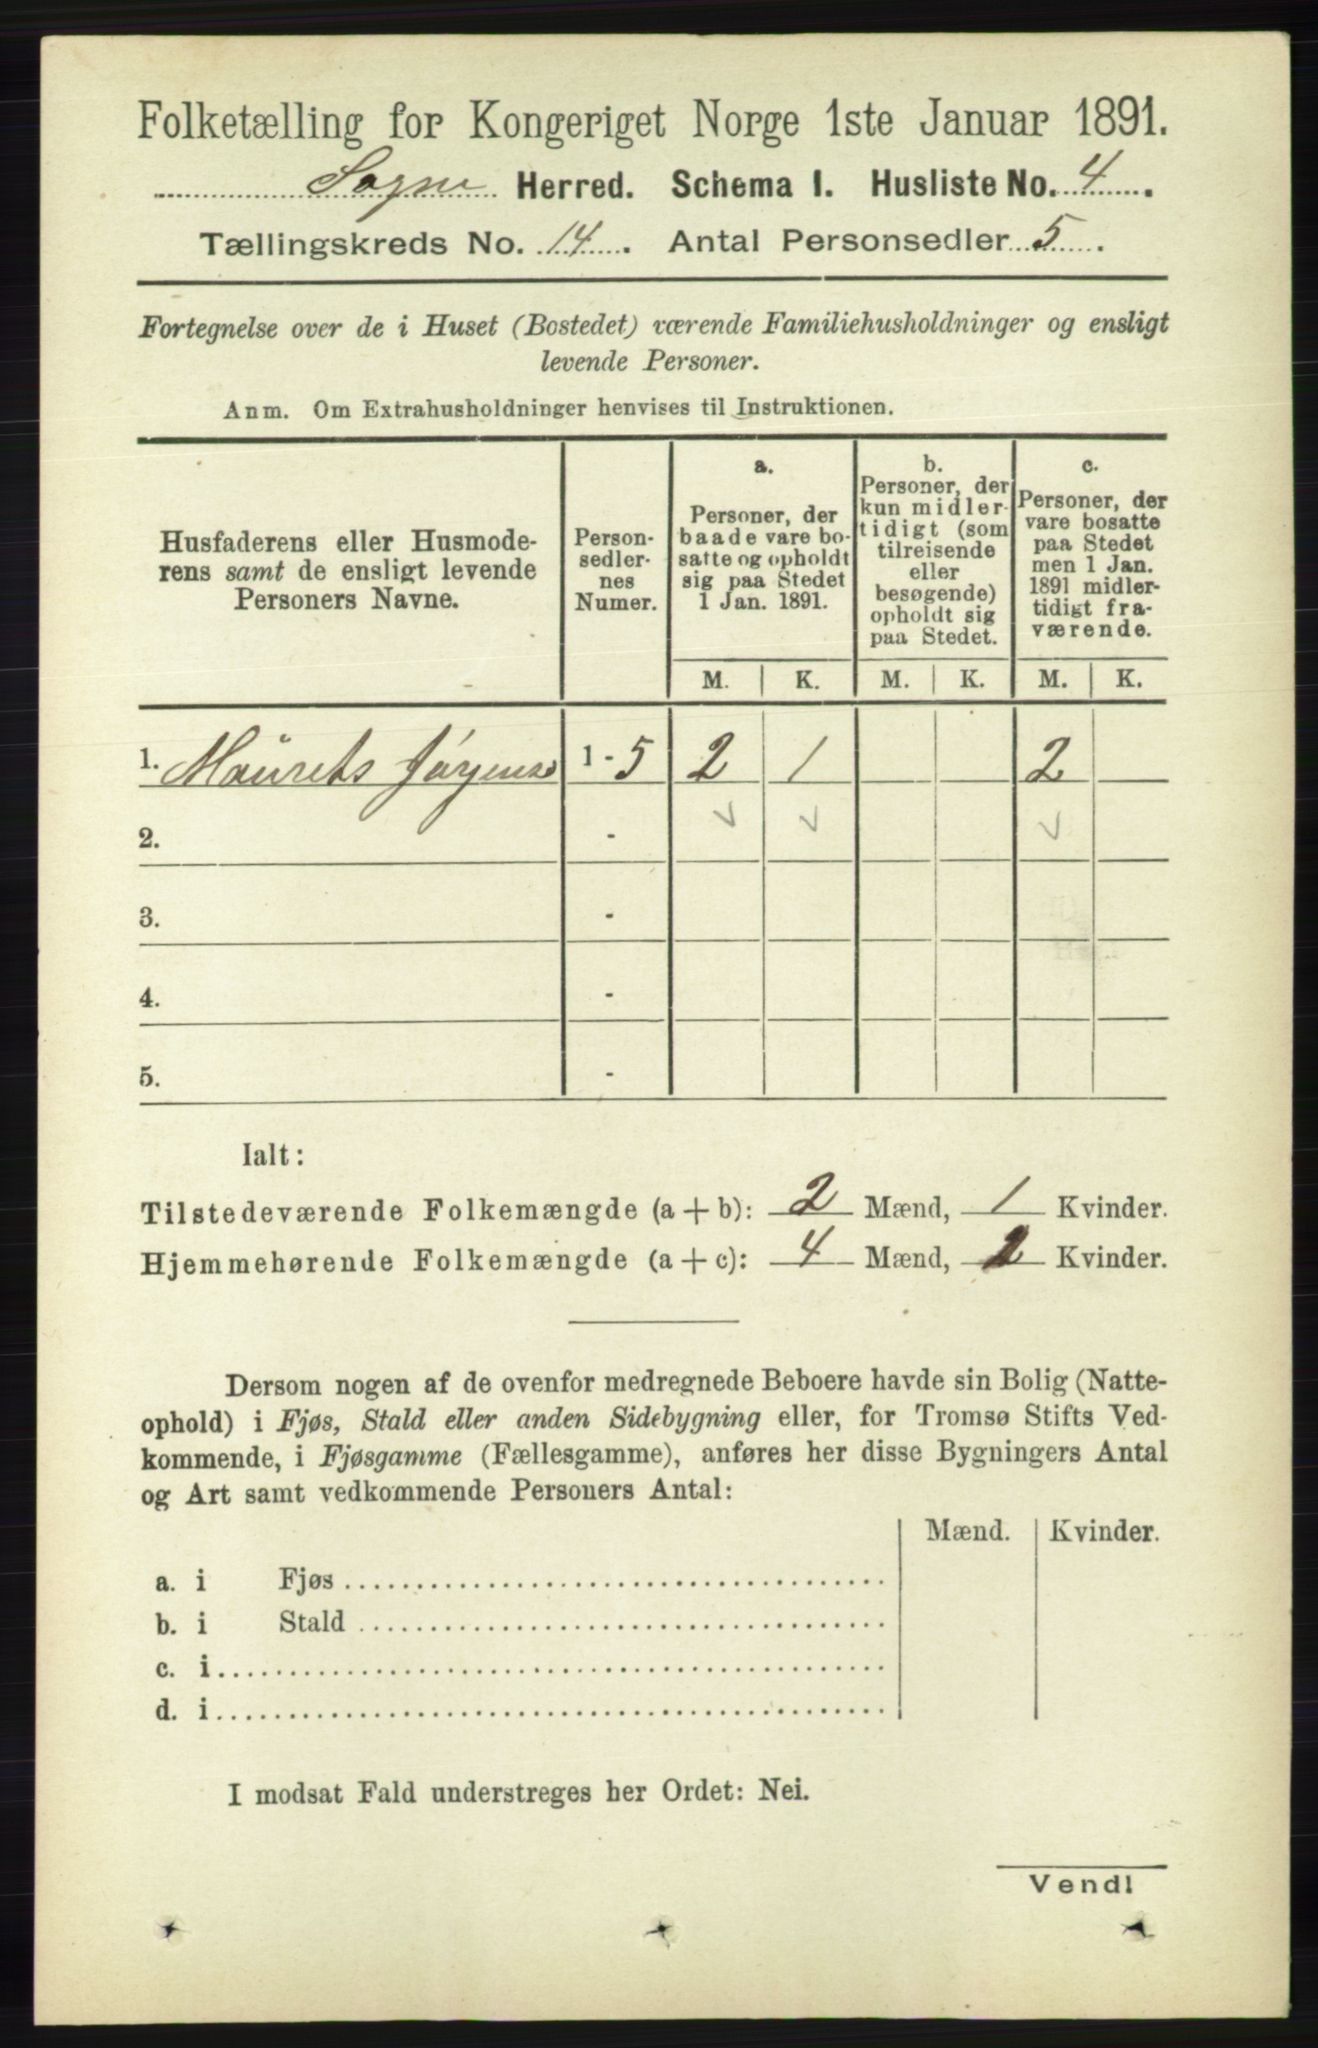 Folketælling for Kongeriget Norge 1ste Januar 1891.
Søgne Herred. Schema I. Husliste No. 4.
Tællingskreds No. 14. Antal Personsedler 5.
Fortegnelse over de i Huset (Bostedet) værende Familiehusholdninger og ensligt
levende Personer.
Anm. Om Extrahusholdninger henvises til Instruktionen.
Husfaderens eller Husmode-
rens samt de ensligt levende
Personers Navne.
Person-
sedler-
nes
Numer.
a.
Personer, der
baade vare bo-
satte og opholdt
sig paa Stedet
1 Jan. 1891.
b.
Personer, der
kun midler-
tidigt (som
tilreisende
eller
besøgende)
opholdt sig
paa Stedet.
c.
Personer, der
vare bosatte
paa Stedet
men 1 Jan.
1891 midler-
tidigt fra-
værende.
M. K. M. K. M. K.
1. Maurets Jørgensen 1 - 5 2 1 2
2. -
3. -
4. -
5. -
Ialt:
Tilstedeværende Folkemængde (a + b): 2 Mænd, 1 Kvinder.
Hjemmehørende Folkemængde (a + c): 4 Mænd, Kvinder.
Dersom nogen af de ovenfor medregnede Beboere havde sin Bolig (Natte-
ophold) i Fjøs, Stald eller anden Sidebygning eller, for Tromsø Stifts Ved-
kommende, i Fjøsgamme (Fællesgamme), anføres her disse Bygningers Antal
og Art samt vedkommende Personers Antal:
Mænd. Kvinder.
a. i Fjøs
b. i Stald
c. i
d. i
I modsat Fald understreges her Ordet: Nei.
Vend!